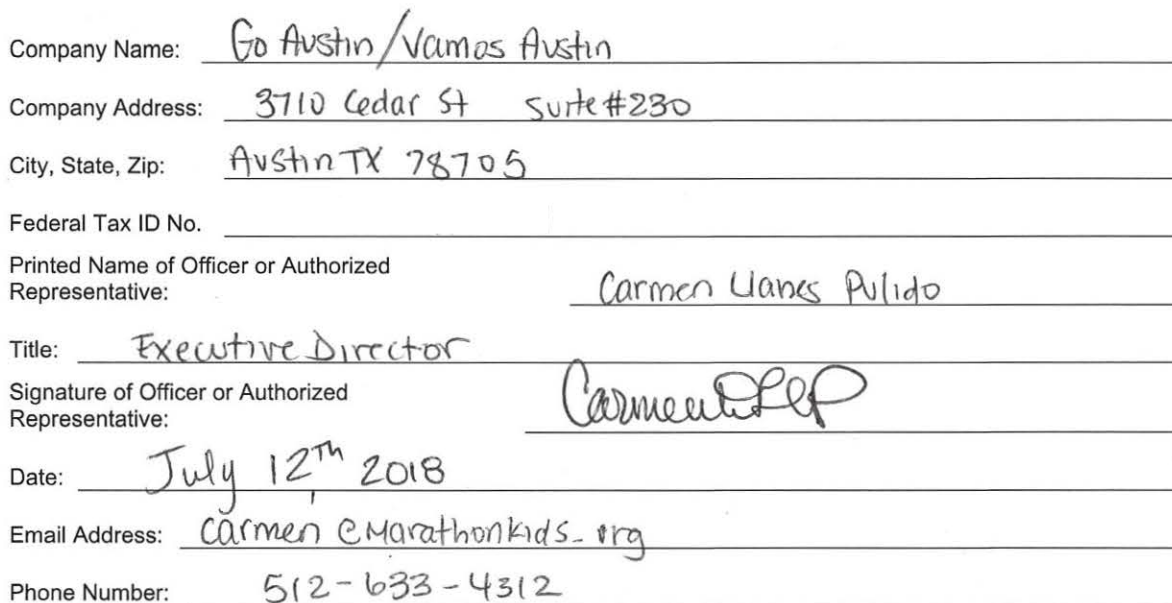 Company Name: Go Austin/Vamos Austin
Company Address: 3710 Cedar St Suite #230
City, State, Zip: Austin TX 78705
Federal Tax ID No.
Printed Name of Officer or Authorized
Representative: Carmen Llanes Pulido
Title: Executive Director
Signature of Officer or Authorized
Representative:
Date: July 12Th 2018
Email Address: Carmen @Marathonkids.org
Phone Number: 512-633-4312